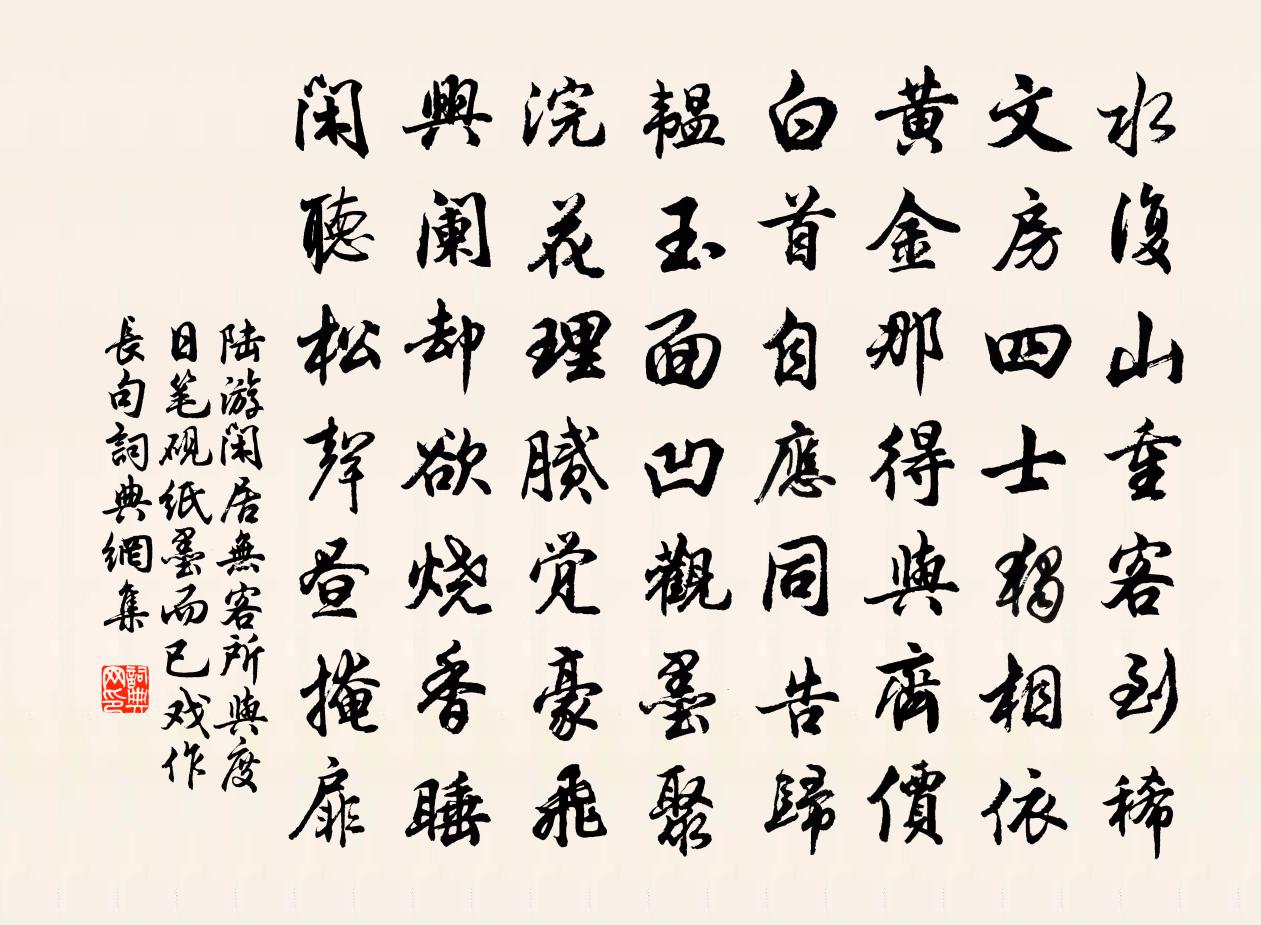 水復山重客到稀
文房四士獨相依
黃金那得與齊價
白首自應同告歸
韞玉面凹觀墨聚
浣花理膩覚豪飛
興闌却欲烧香睡
閑聽松聲昼掩扉
陆游閑居無客所與度
日笔砚纸墨而已戏作
長句詞典網集
詞典
网印